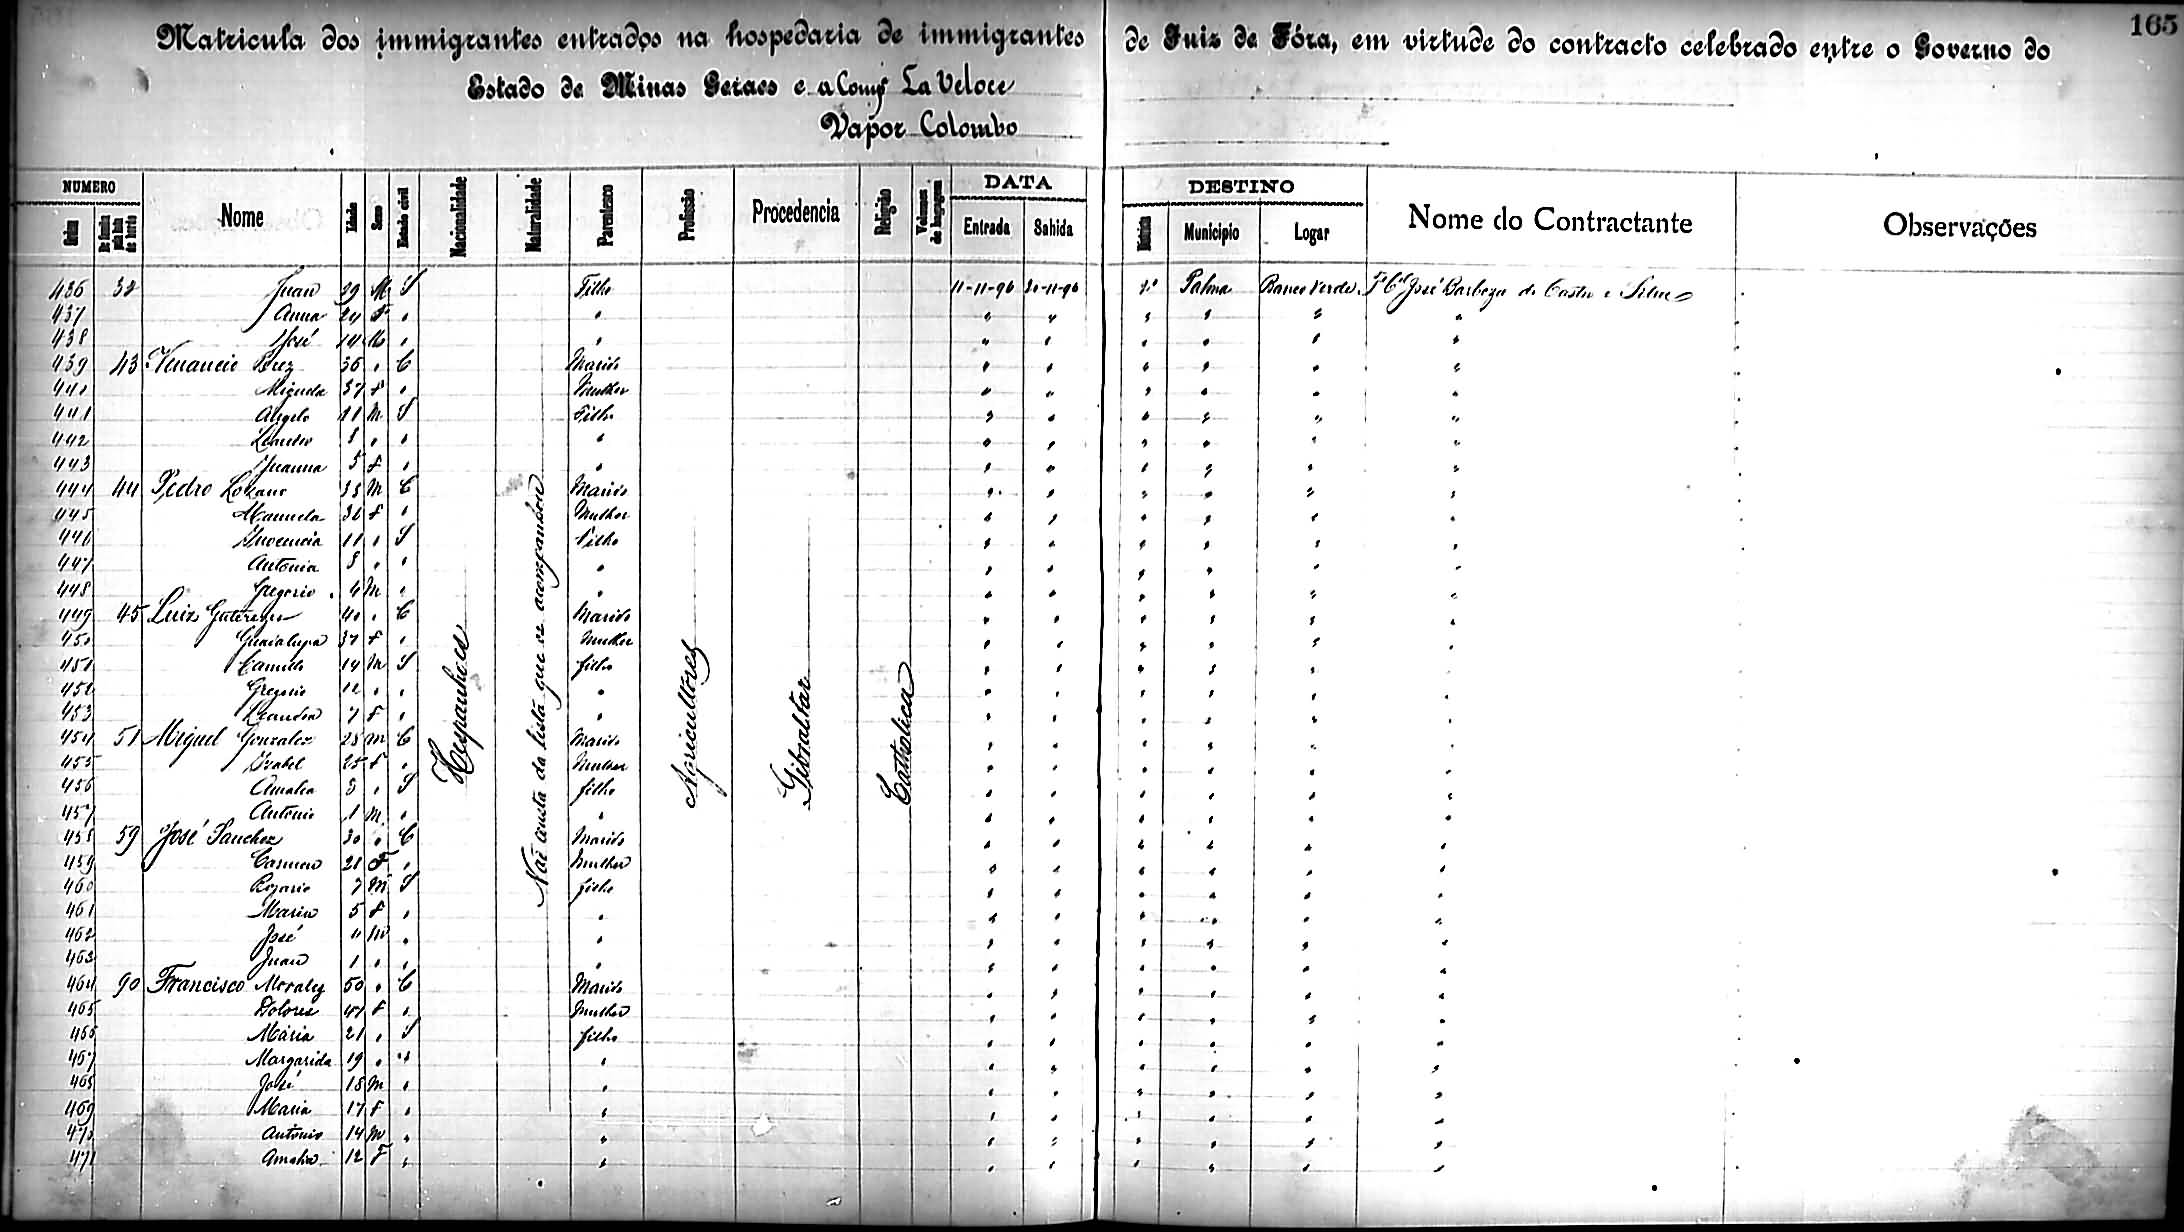 165
Matricula dos immigrantes entrados na hospedaria de immigrantes de Juiz de Fóra, em virtude do contracto celebrado entre o Governo do
Estado de Minas Geraes e a Comp La Veloce
Vapor Colombo
NUMERO Nome Idade Sexo Estado civil Nacionalidade Naturalidade Parentesco Profissão Procedencia Religião Volumes de bagagem DATA DESTINO Nome do Contractante Observações
Ordem De familia pela lista de bordo Entrada Sahida Municipio Logar
436 38 Juan 29 M S Filho 11-11-96 Palma José Barboza de Castro e Silva
437 Anna 24 F "
438 José 14 M " "
439 43 Venancio Perez 36 " C Marido
440 Miguela 37 F " Mulher
441 Angelo 11 M S Filho
442 Leandro 8 " " "
443 Juanna 5 F " "
444 44 Pedro Lozano 38 M C Marido
445 Manuela 36 F " Mulher
446 Inocencia 11 " S Filho
447 Antonia 8 " " "
448 Gregorio 4 M " "
449 45 Luiz 40 " C Marido
450 Guadalupa 37 F " Mulher
451 Camilo 14 M S filho
452 Gregorio 12 " " "
453 Leandra 7 F " "
454 51 Miguel Gonzalez 28 M C Marido
455 Izabel 25 F " Mulher
456 Amalia 3 " S filho
457 Antonio 1 M " "
458 59 José Sanchez 30 " C Marido
459 Carmen 21 F " Mulher
460 Rozario 7 M S filho
461 Maria 5 F " "
462 José " M " "
463 Juan 1 " " "
464 90 Francisco Morales 50 " C Marido
465 Dolores 47 F " Mulher
466 Maria 21 " S filho
467 Margarida 19 " " "
468 José 18 M " "
469 Maria 17 F " "
470 Antonio 14 M " "
471 Amalia 12 F " "
Hespanhoes
Não consta da lista que os acompanhou
Agricultores
Gibraltar
Catholica